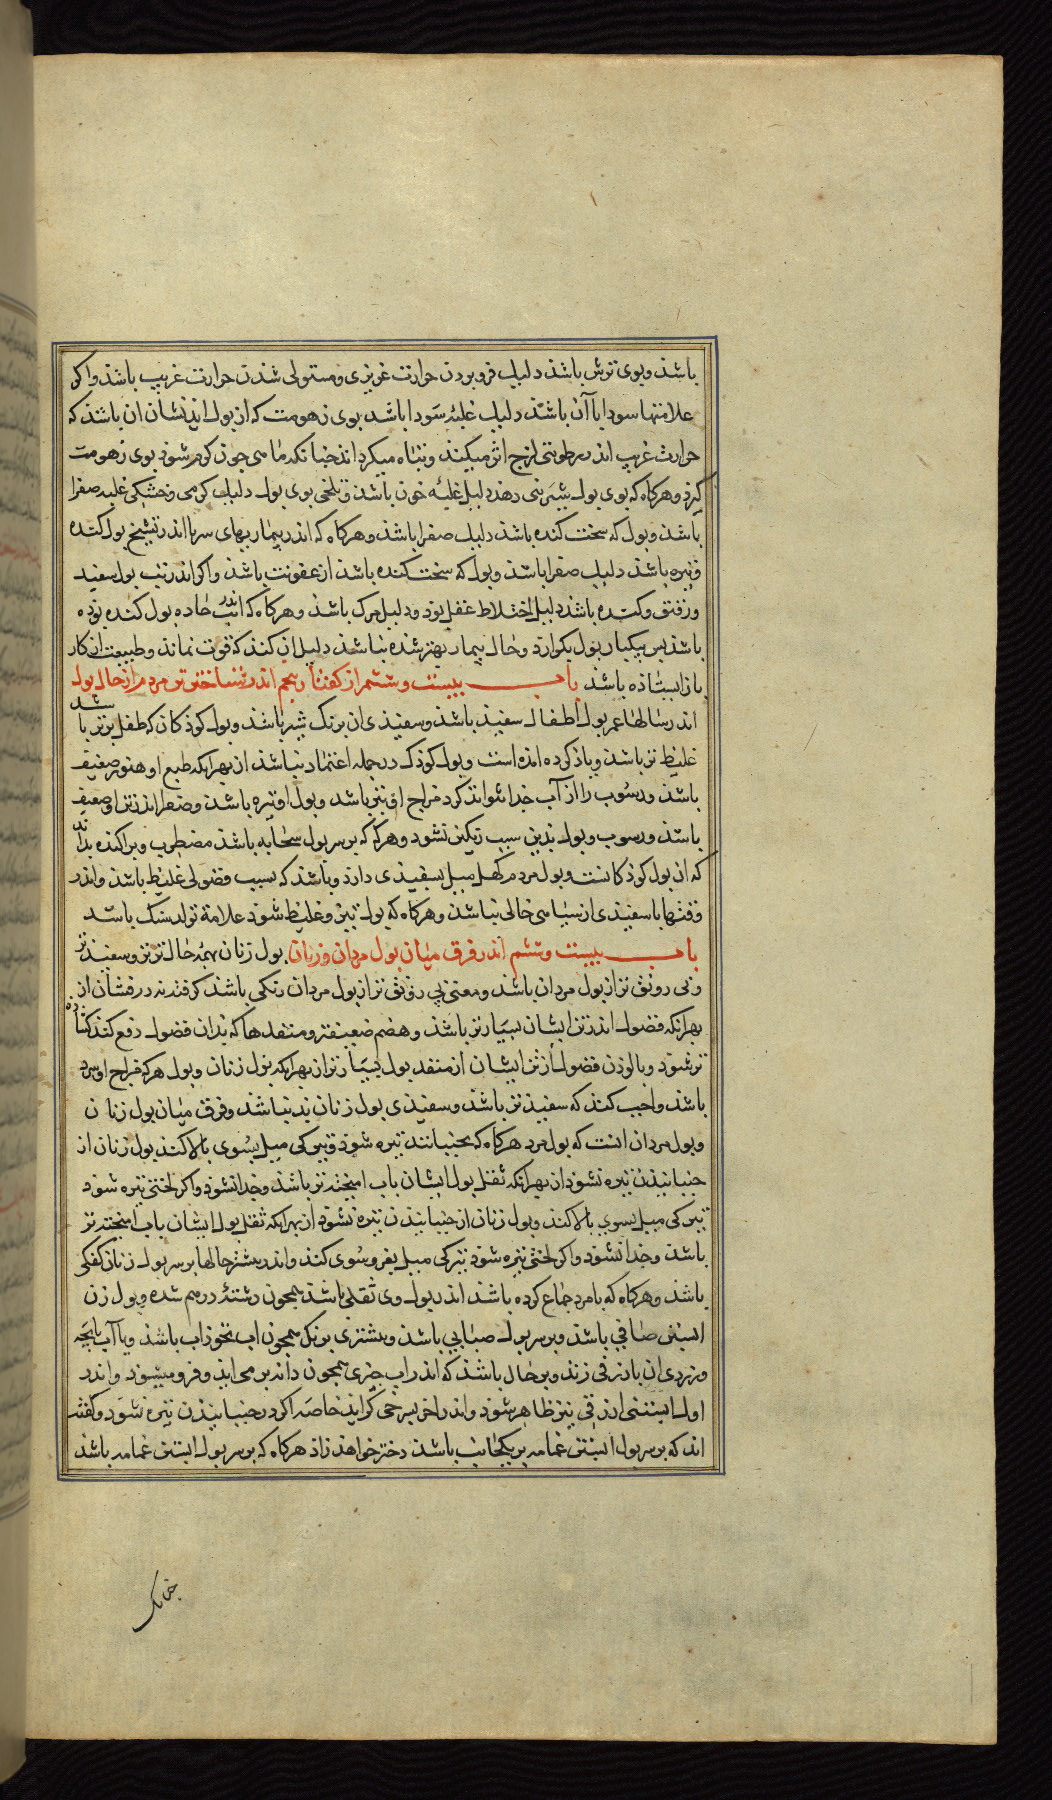 باشذ و بوی ترش باشذ دلیل فرو بردن حرارت غریزی و مستولی شدن حرارت غریب باشذ و اکر
علامتها سودا با آن باشذ دلیل غلبهٔ سودا باشد بوی زهومت که از بول اید نشان ان باشذ که
حرارت غریب اندر رطوبتی لزج اثر میکند و تباه میکرداند جنانکه ماهی جون کرم شوذ بوی زهومت
کیرذ و هرکاه که بوی بول بشیرینی دهذ دلیل غلبهٔ خون باشذ و تلخی بوی بول دلیل کرمی و خشکی غلبه صفرا
باشذ و بول که سخت کنده باشذ دلیل صفرا باشذ و هرکاه که اندر بیماریهای سر با اندر تشنج بول کنده
و تیره باشذ دلیل صفرا باشذ و بول که سخت کنده باشذ از عفونت باشذ و اکر اندر تب بول سفید
و رقیق و کنده باشذ دلیل اختلاط عقل بوذ و دلیل مرک باشذ و هرکاه که اندر تب حاده بول کنده بوذه
باشذ بس بیکبار بول بکوارد و حال بیمار بهتر شده نباشذ دلیل ان کند که قوت نماند و طبیعت از کار
باز ایستاذه باشذ باب بیست و ششم از کفتار پنجم اندر شناختن تن مردم از حال بول
اندر سالهاء عمر بول اطفال سفیذ باشذ و سفیذی ان برنک شیر باشذ و بول کوذکان که طفل برتر باشد
غلیظ تر باشذ و یاذ کرده امذه است و بول کوذک در جمله اعتماد نباشذ ان بهر انکه طبع او هنوز ضعیف
باشذ و رسوب را از آب جدا نتواند کرد مزاج او تیز باشد و بول او تیره باشذ و صفرا اندر تن او ضعیف
باشذ و رسوب و بول بدین سبب رنکین نشود و هرکه که بر سر بول سحابه باشذ مضطرب و پراکنده بداند
که ان بول کوذکانست و بول مردم کهل میل بسفیذی دارذ و باشذ که بسبب فضولی غلیظ باشذ و اندر
وقتها با سفیدی از سیاهی خالی نباشذ و هرکاه که بول تیز و غلیظ شوذ علامة تولد سنک باشد
باب بیست و ششم اندر فرق میان بول مردان و زنان. بول زنان بهمه حال تر و سفیذتر
و بی رونق تر از بول مردان باشذ و معنی بی رونق تر از بول مردان رنکی باشذ کرفته نه درفشان از
بهر انکه فضول اندر تن ایشان بسیارتر باشذ و هضم ضعیفتر و منفذها که بدان فضول دفع کنند کشاده
تر شوذ و بالوذن فضول از تن ایشان از منفذ بول بسیارتر از بهر انکه بول زنان و بول هرکه مزاج او سرد
باشذ واجب کند که سفیذتر باشذ و سفیذی بول زنان بذ نباشذ و فرق میان بول زنان
و بول مردان انست که بول مرد هرکاه که بجنبانند تیره شوذ و تیرکی میل بسوی بالا کند بول زنان از
جنبانیذن تیره نشوذ از بهر انکه ثفل بول ایشان باب امیخته تر باشذ و جدا نشوذ و اکر لختی تیره شوذ
تیرکی میل بسوی بالا کند و بول زنان از جنبانیذن تیره نشوذ از بهر انکه ثفل بول ایشان باب امیخته تر
باشذ و جدا نشوذ و اکر لختی تیره شوذ تیرکی میل بفروسوی کند و اندر بیشتر حالها بر سر بول زنان کفکی
باشذ و هرکاه که با مرد جماع کرده باشذ اندر بول وی ثقلی باشذ همجون رشتهٔ درهم شده و بول زن
ابستن صافی باشذ و بر سر بول ضبابی باشذ و بیشتری برنک همجون اب نخوذاب باشذ و یا آب پایجه
و زردی ان بازرقی زند و بر حال باشذ که اندر اب جیزی همجون دانه بر می ایذ و فرو میشوذ و اندر
اول ابستنی ازرقی نیز ظاهر شوذ و اندر اخر بسرخی کرایذ خاصه اکر در جنبانیذن تیره شود و کفته
اند که بر سر بول ابستن غمامه بر یکجانب باشذ دختر خواهذ زاذ هرکاه که بر سر بول ابستن غمامه باشذ
جنانک